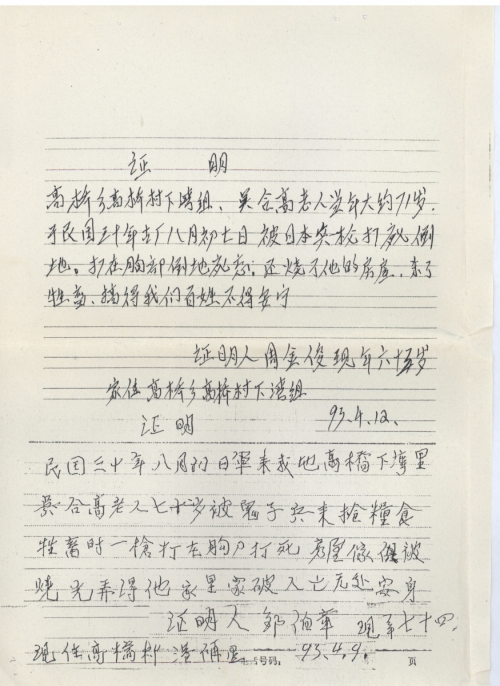 证 明
高桥乡高桥村下湾组、吴合高老人当年大约71岁.
于民国三十年古厂八月初七日被日本兵枪打死倒
地。打在胸部倒地死亡;还烧了他的房屋,杀了
牲畜、搞得我们百姓不得安宁
证明人周金俊现年六十五岁
家住高桥乡高桥村下湾组
证 明 93.4.12.
民国三十年八月初日軍来我地高橋下湾里
吴合高老人七十多岁被鬼子兵来搶糧食
牲畜时一槍打在胸口打死 房屋傢俱被
燒光弄得他家里家破人亡无处安身
证明人 邹伯華 现年七十四.
现住高橋村 93.4.9.
号码: 页